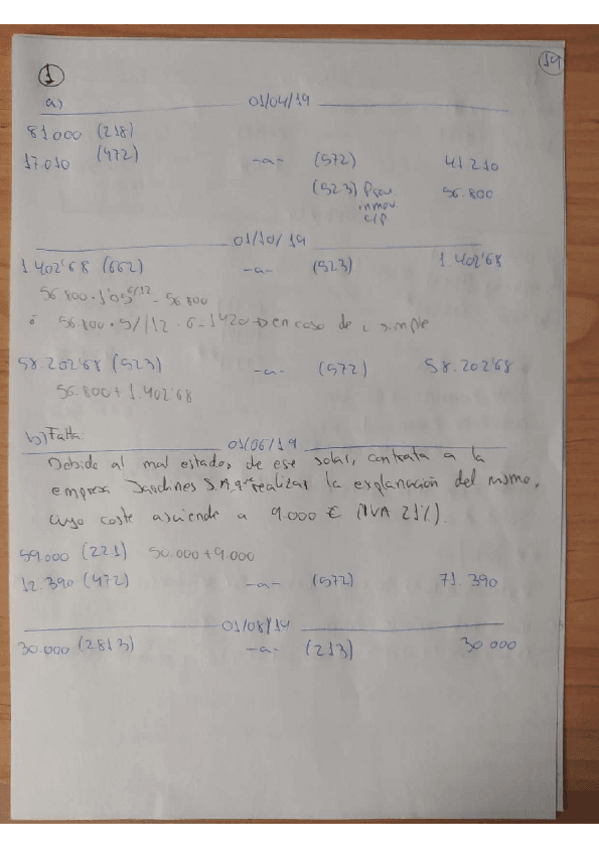 1
14
a)
01/04/19
81.000 (218)
17.010 (472) -a- (572) 41.210
(523) Prov. inmov. c/p. 56.800
01/10/19
1.402'68 (662) -a- (523) 1.402'68
56.800 · 1'05^6/12 - 56.800
ó 56.800 · 5%/12 · 6 = 1420 → en caso de i simple
58.202'68 (523) -a- (572) 58.202'68
56.800 + 1.402'68
b) Falta:
01/06/19
Debido al mal estado, de ese solar, contrata a la
empresa Jardines S.A. que realizar la explanación del mismo,
cuyo coste asciende a 9.000 € (IVA 21%).
59.000 (221) 50.000 + 9.000
12.390 (472) -a- (572) 71.390
01/08/19
30.000 (2813) -a- (213) 30.000